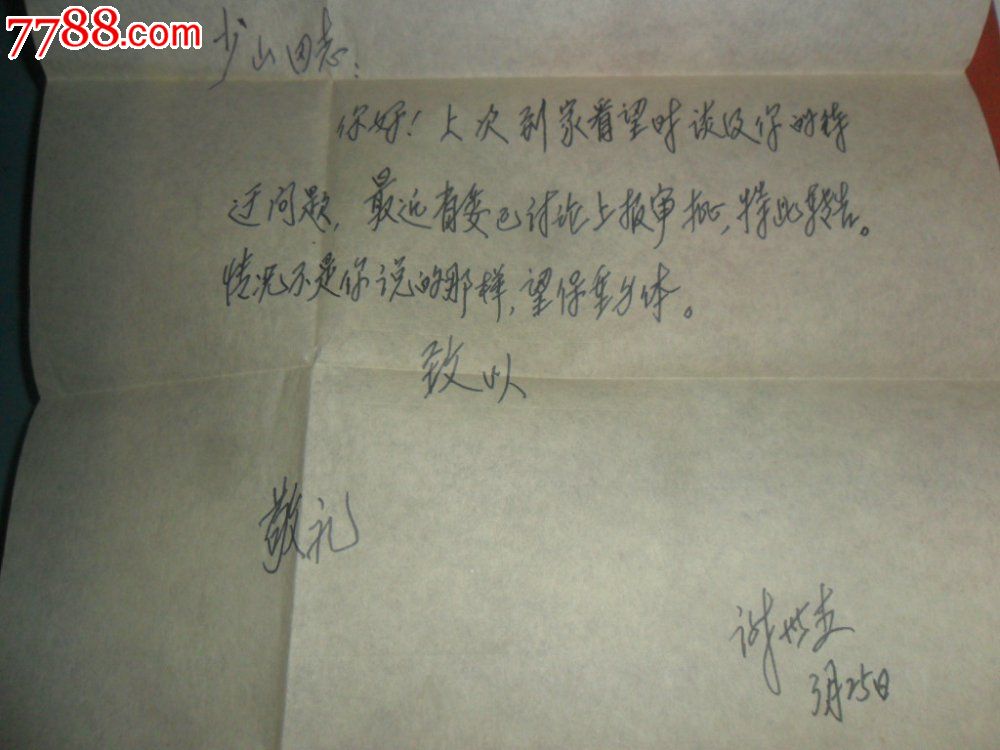 7788.com
少山同志:
你好!上次到家看望时谈及你的待
迂问题,最近省委已讨论上报审批,特此转告。
情况不是你说的那样,望保重身体。
致以
敬礼
谢世
3月25日